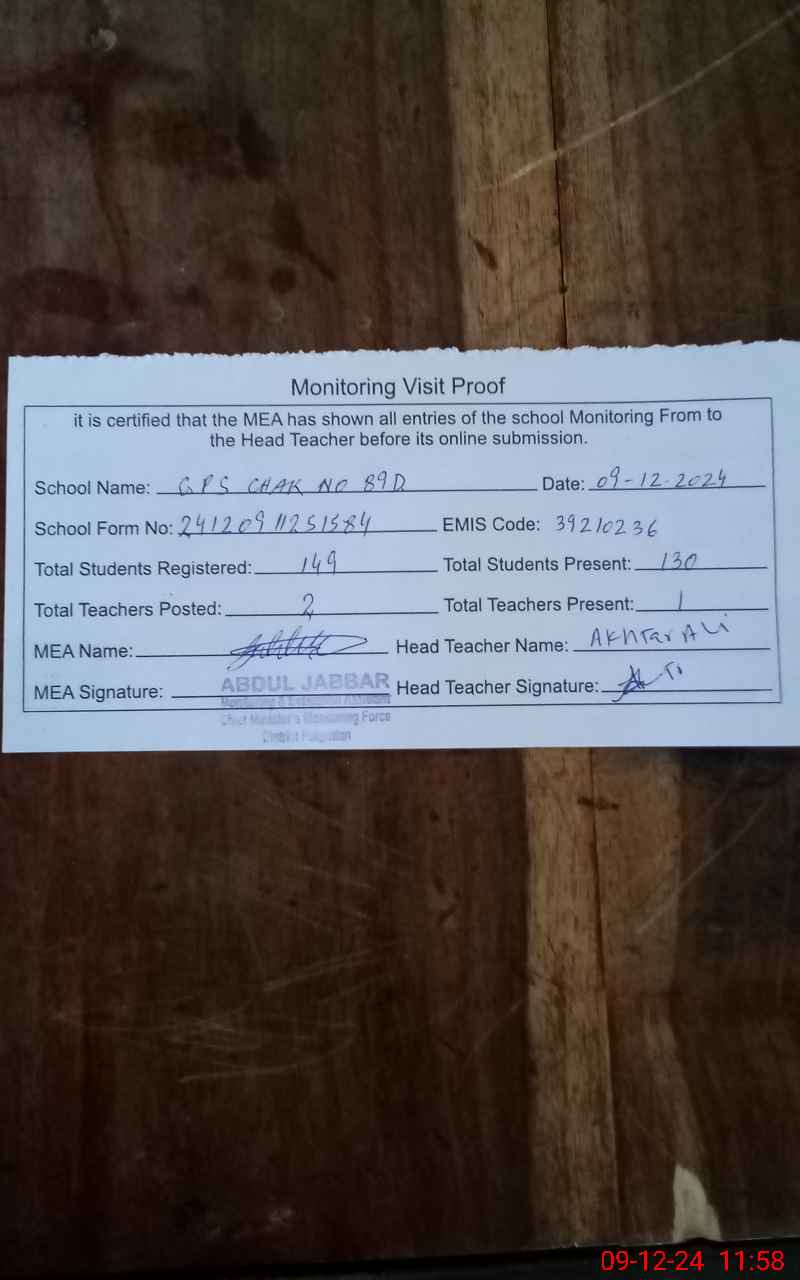 Monitoring Visit Proof
it is certified that the MEA has shown all entries of the school Monitoring From to
the Head Teacher before its online submission.
School Name: GPS CHAK NO 89D Date: 09-12-2024
School Form No: 24120911251584 EMIS Code: 39210236
Total Students Registered: 149 Total Students Present: 130
Total Teachers Posted: 2 Total Teachers Present: 1
MEA Name: Head Teacher Name: Akhtar Ali
MEA Signature: ABDUL JABBAR Head Teacher Signature:
Monitoring & Evaluation Assistant
Chief Minister's Monitoring Force
District Pakpattan
09-12-24 11:58